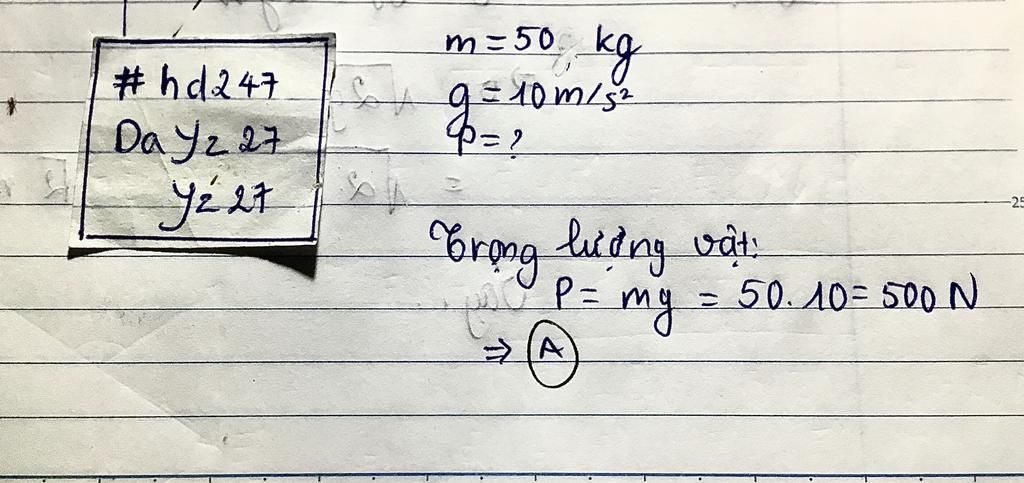 #hd247
Dayz27
yz27
m = 50 kg
g = 10 m/s²
P = ?
Trọng lượng vật:
P = mg = 50.10 = 500 N
⇒ A
25